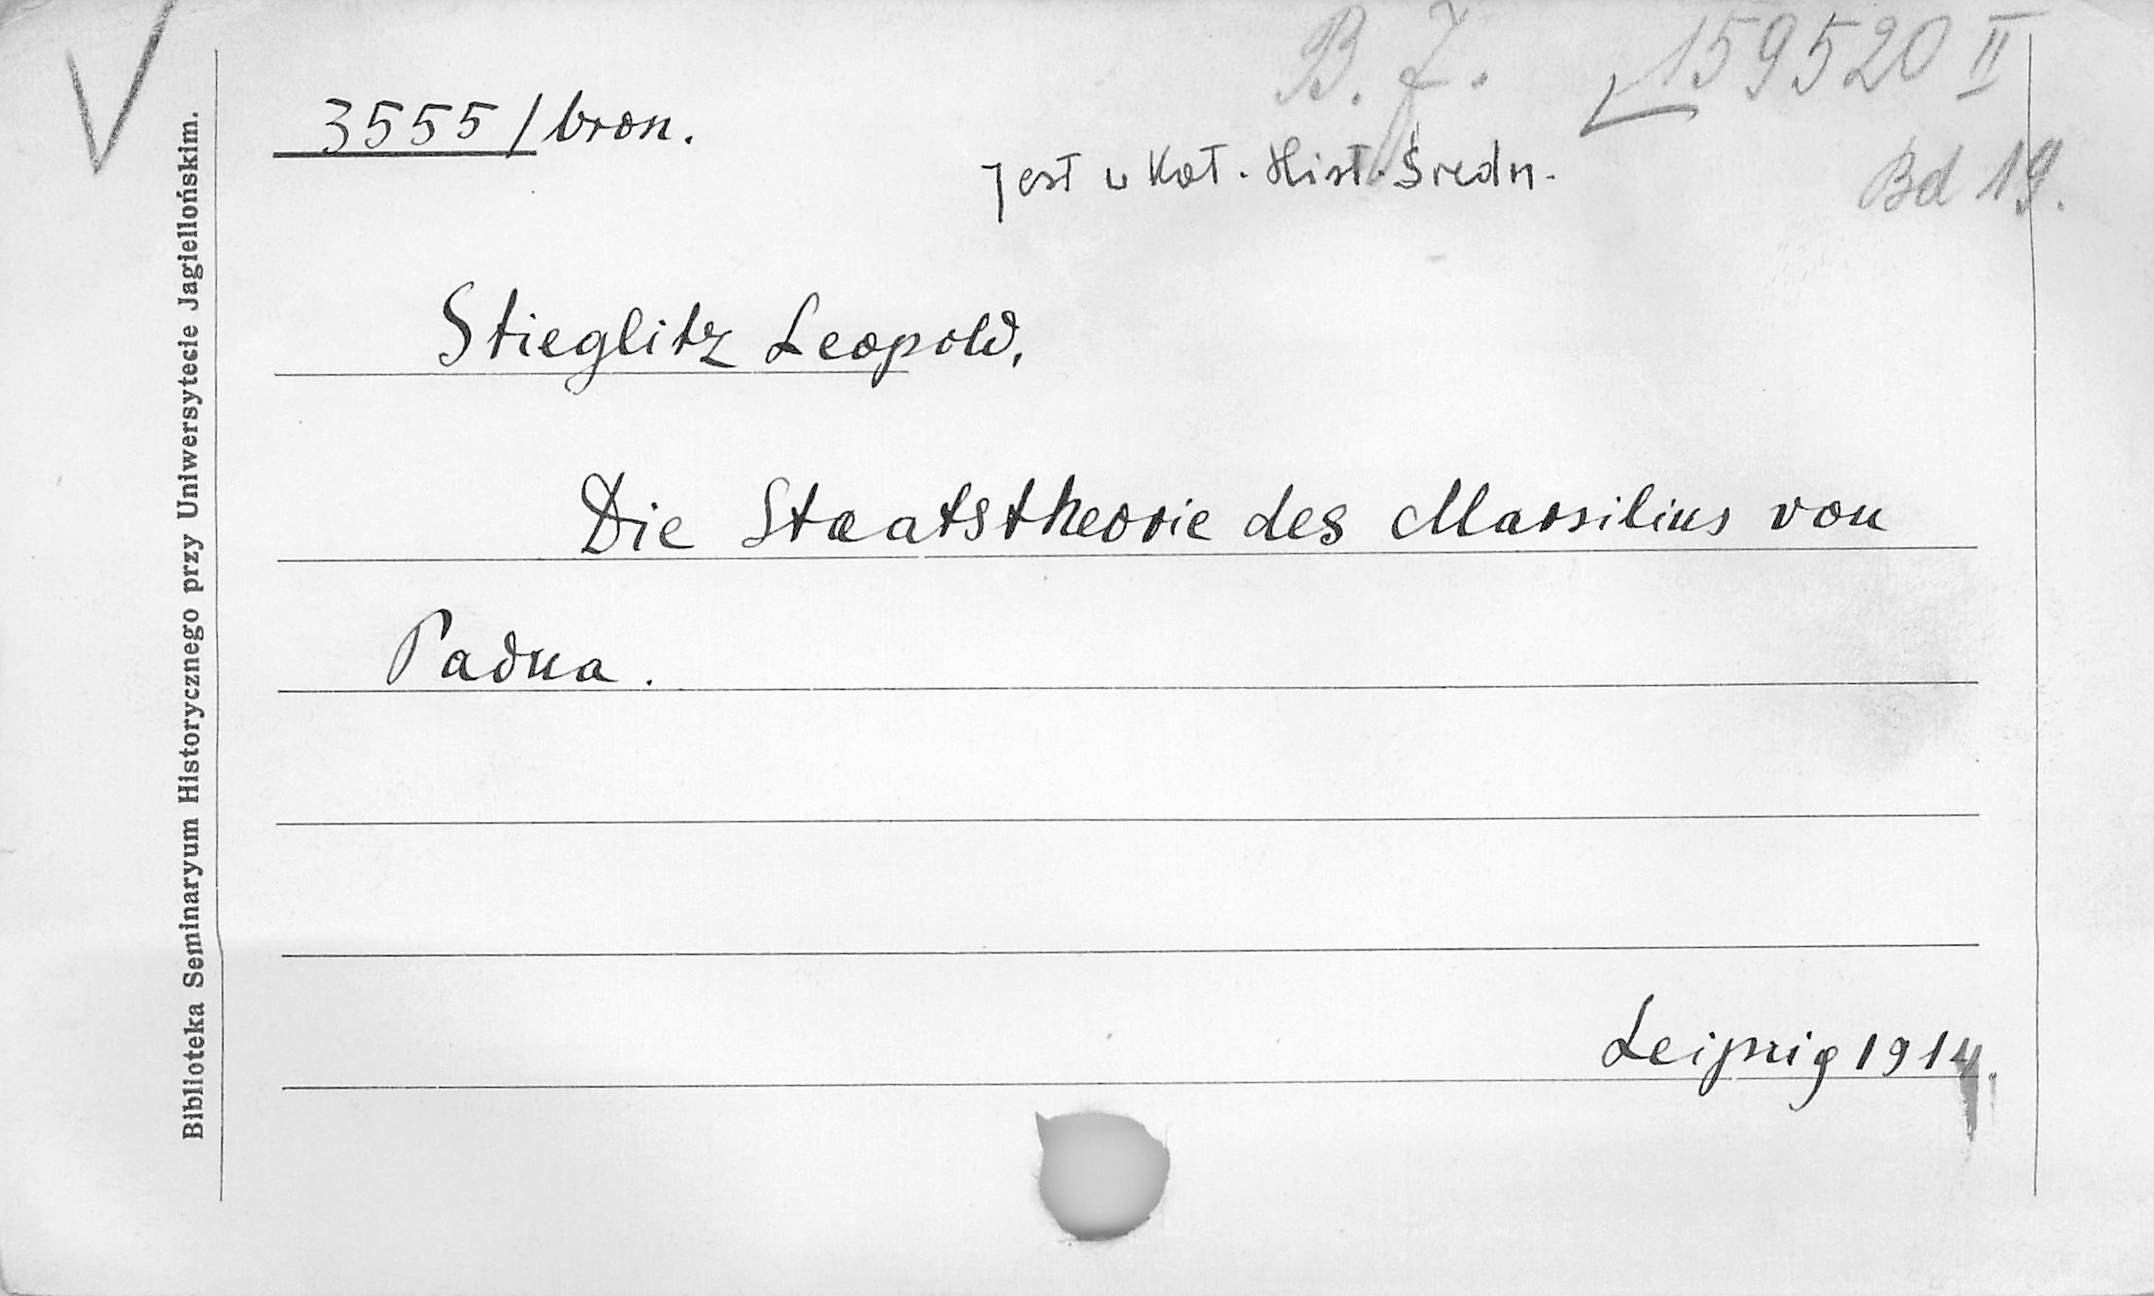 B. J. 159520 II
3555/bron.
Jest w Kat. Hist. Średn.
Bd 19.
Stieglitz Leopold,
Die Staatstheorie des Marsilius von
Padua.
Leipzig 1914.
Biblioteka Seminaryum Historycznego przy Uniwersytecie Jagiellońskim.